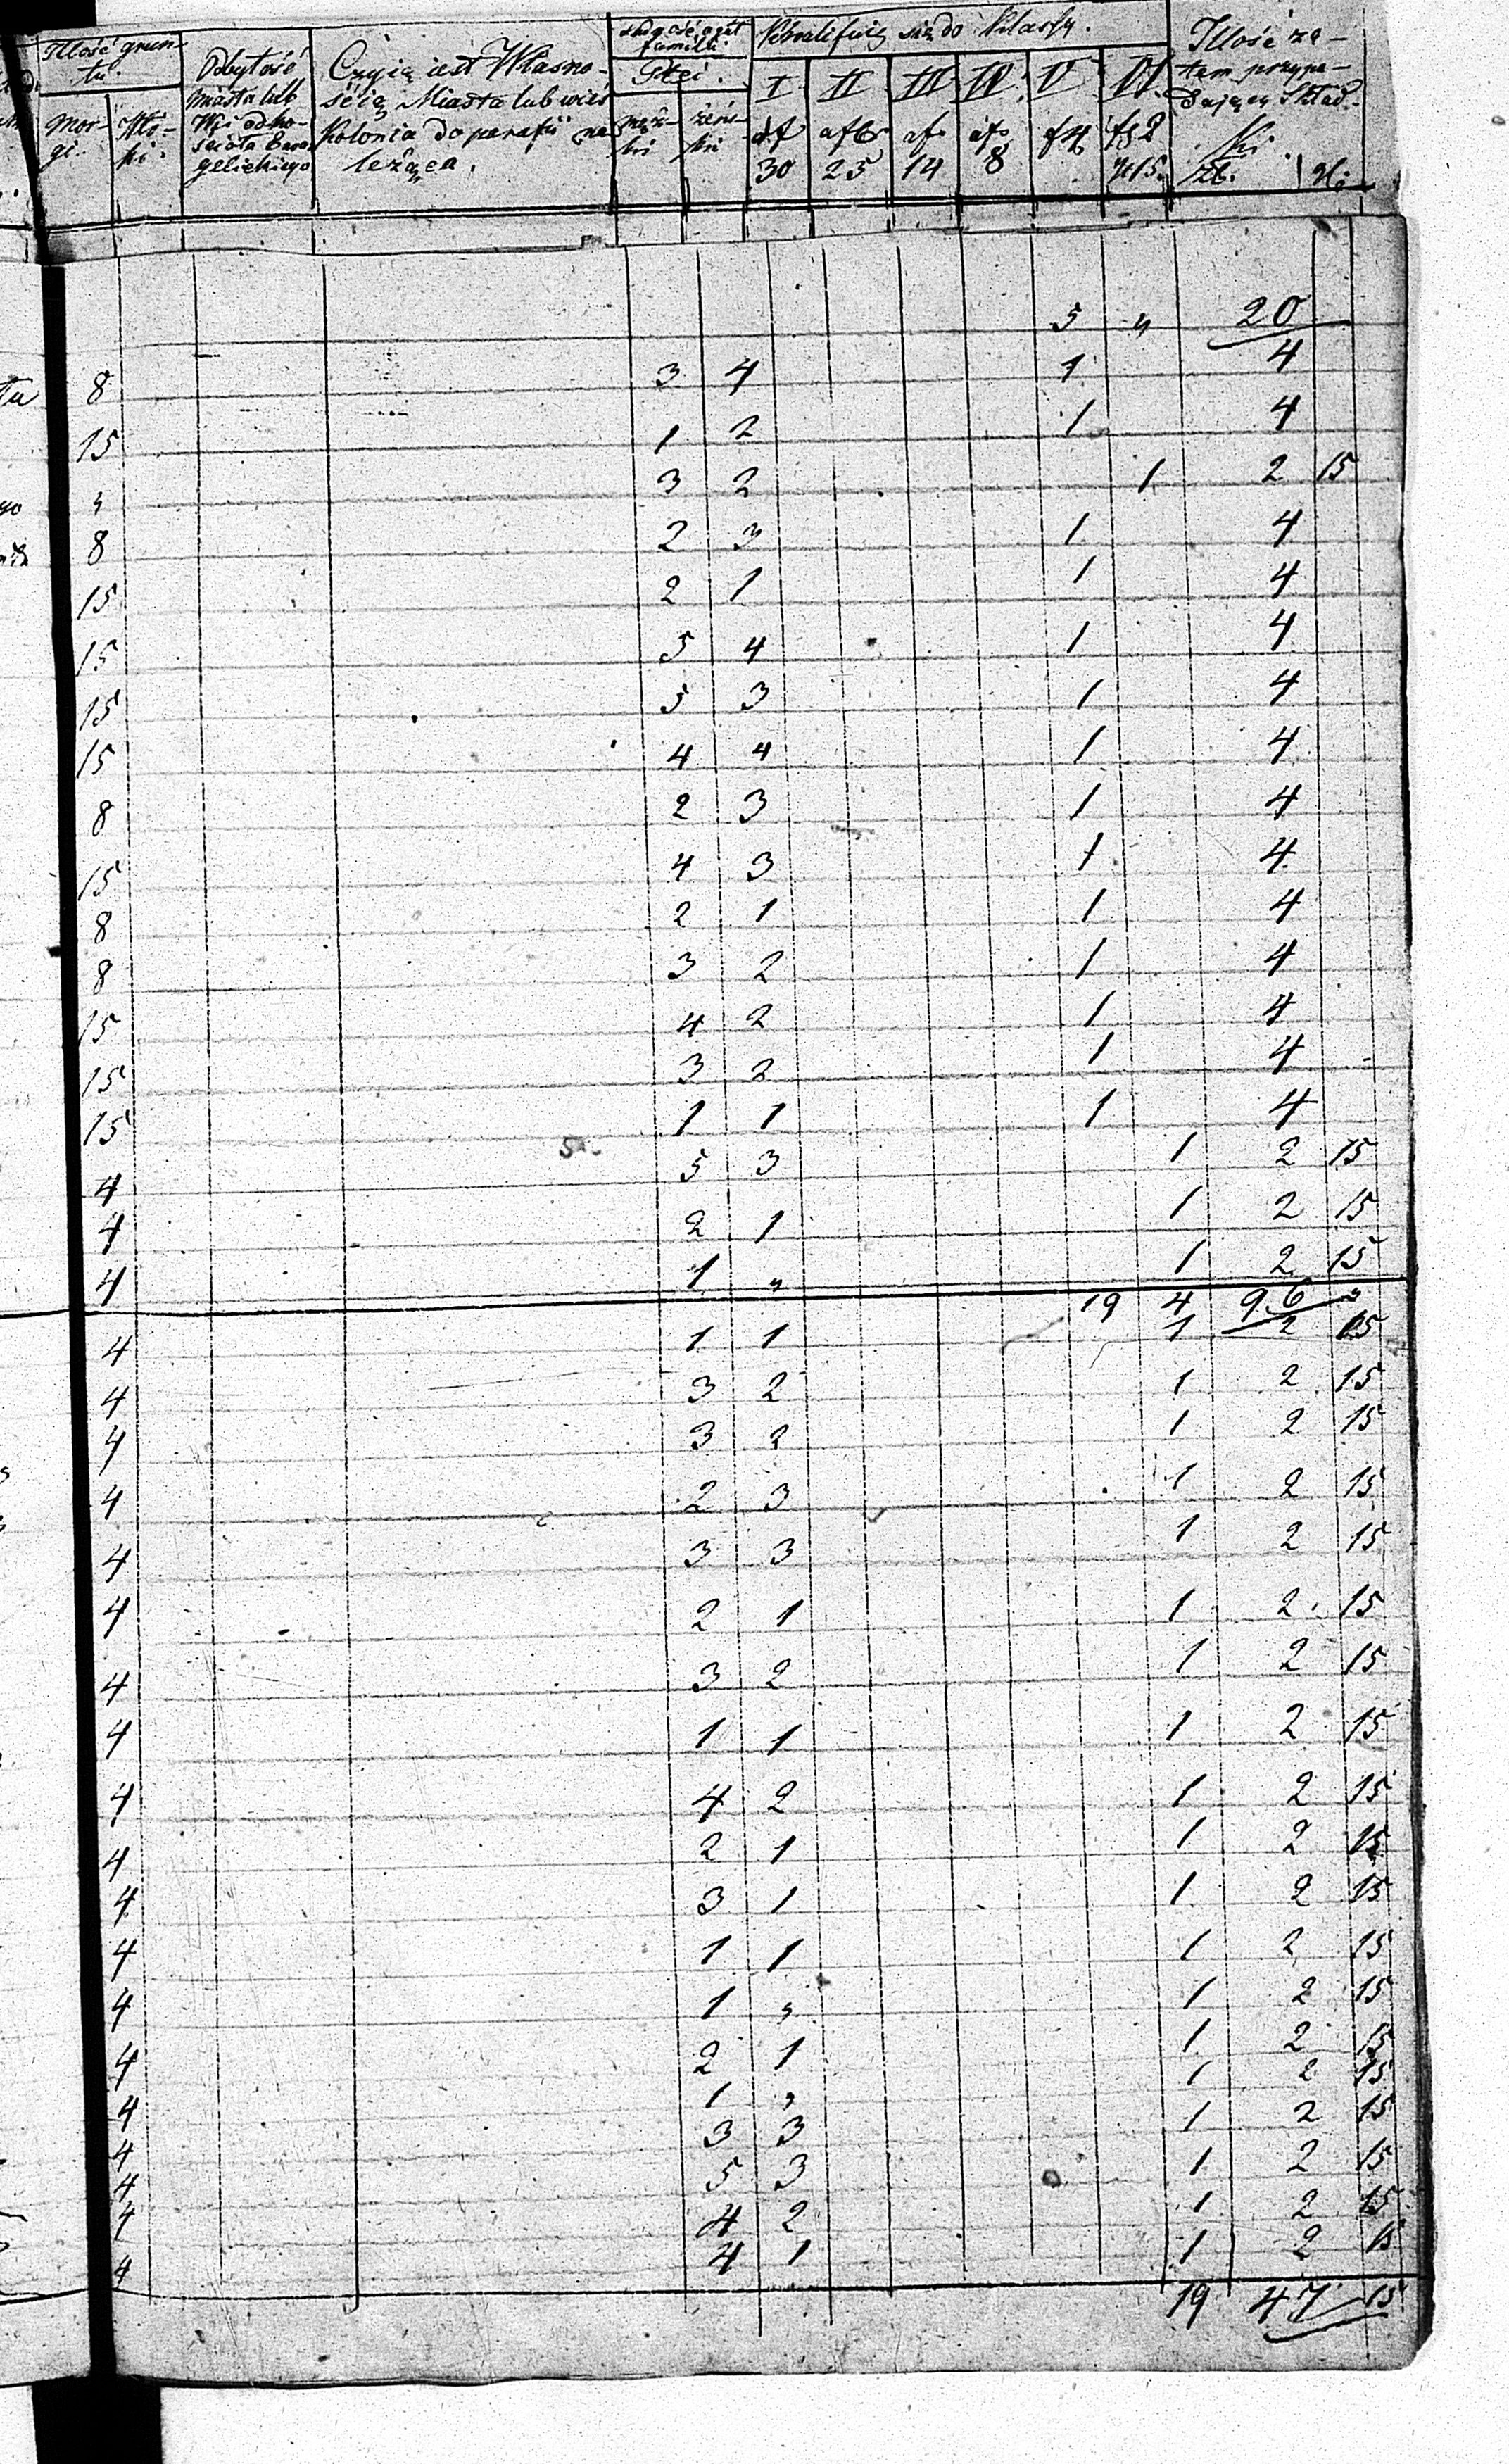 Illość grun-
tu.
Mor-
gi.
Odległość
miasta lub
Wsi od ko-
ścioła Ewan
gelickiego
Czyią iest Własno-
ścią Miasta lub wieś
Kolonia do parafii na
leżąca.
familii
Płci.
męz-
ki
żeńs-
ki
Kwalifuią się do Klassy.
I
30
II
25
III
14
IV
8
V
f 4
VI
f 2
g 15.
Illość za-
tem przypa-
daiącey Skład-
ki.
Zł. gr
5 " 20
8 3 4 1 4
15 1 2 1 4
" 3 2 1 2 15
8 2 3 1 4
15 2 1 1 4
15 5 4 1 4
15 5 3 1 4
15 4 4 1 4
8 2 3 1 4
15 4 3 1 4
8 2 1 1 4
8 3 2 1 4
15 4 2 1 4
15 3 2 1 4
15 1 1 1 4
4 5 3 1 2 15
4 2 1 1 2 15
4 1 " 1 2 15
19 4 96 "
4 1 1 1 2 15
4 3 2 1 2 15
4 3 2 1 2 15
4 2 3 1 2 15
4 3 3 1 2 15
4 2 1 1 2 15
4 3 2 1 2 15
4 1 1 1 2 15
4 4 2 1 2 15
4 2 1 1 2 15
4 3 1 1 2 15
4 1 1 1 2 15
4 1 " 1 2 15
4 2 1 1 2 15
4 1 " 1 2 15
4 3 3 1 2 15
4 5 3 1 2 15
4 4 2 1 2 15
4 4 1 1 2 15
19 47 15